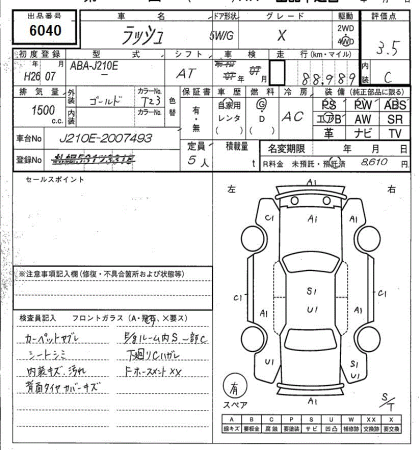 出品番号 車名 ドア形状 グレード 駆動 評価点
6040 ラッシュ 5W/G X 2WD 4WD 3.5
初度登録 型式 シフト 車検 走行(km・マイル) 内装
H26 07 ABA-J210E AT 88,989 C
排気量 外装 カラーNo. 色替 保証書 車歴 燃料 冷房 装備(純正部品に限る)
1500 c.c. ゴールド T23 有・無 自家用 レンタ ( ) G D ( ) AC PS PW ABS
内装 カラーNo. エアB AW SR
革 ナビ TV
車台No J210E-2007493 定員 積載量 名変期限 年 月 日
登録No 5人 t R料金 未預託・預託済 8,610 円
セールスポイント
左 右
A1
C1 A1 A1
※注意事項記入欄(修復・不具合箇所および状態等)
C1 S1 U1 C1
検査員記入 フロントガラス(A・飛石、×要ス)
カーペットヤブレ
シートシミ 下廻りCハガレ
内装キズ、汚れ FホースメントXX
背面タイヤカバーキズ
U1 A1 U1
有
スペア
A1
S/T
A B C P S U W X XX
線キズ 要板金 腐錆 要塗装 サビ 凹凸 補修跡 交換跡 要交換